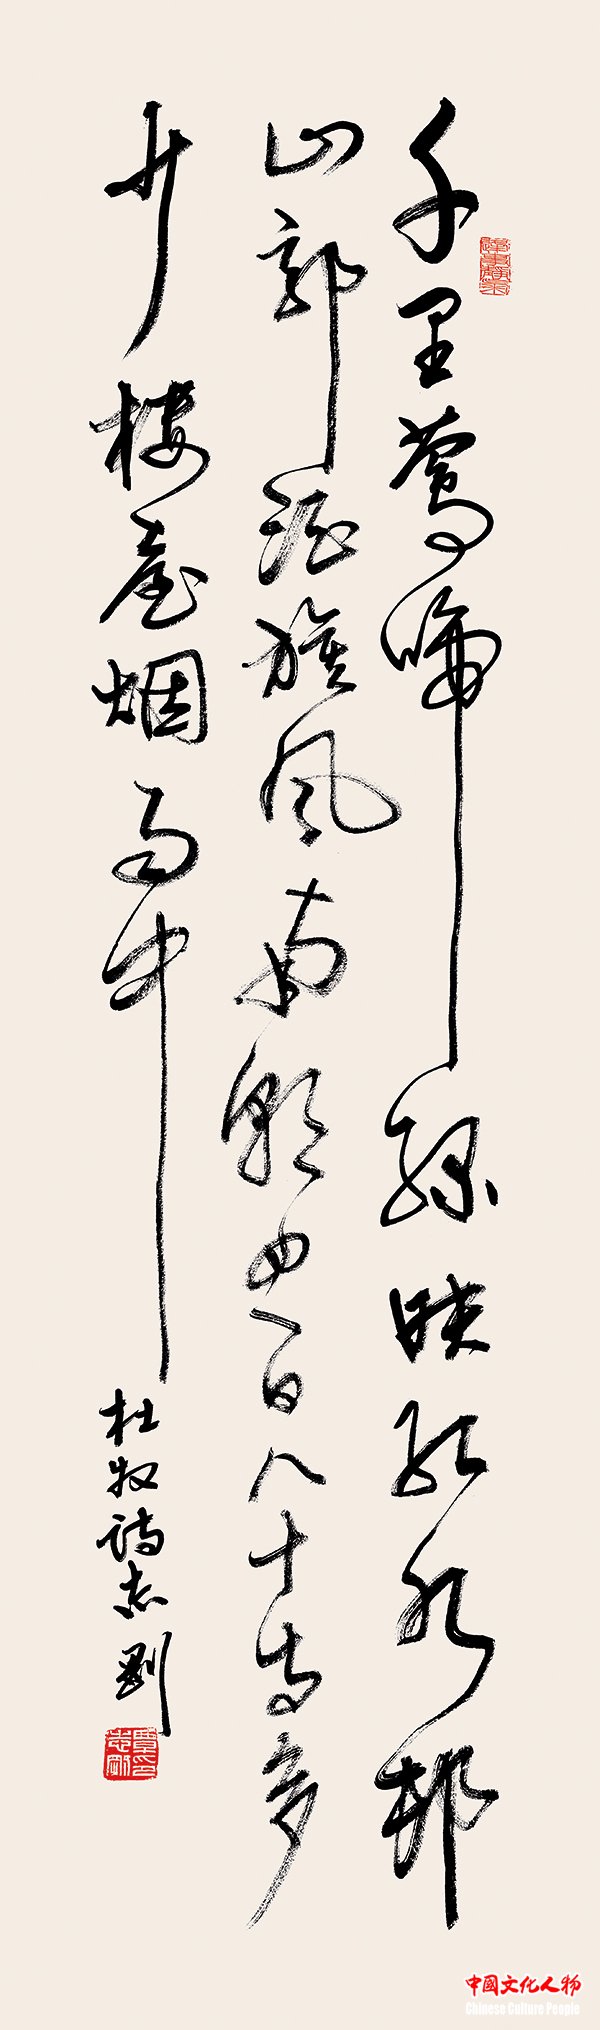 千里莺啼绿映红水邨
山郭酒旗风南朝四百八十寺多
少楼臺烟雨中
杜牧诗志刚
中國文化人物
Chinese Culture People